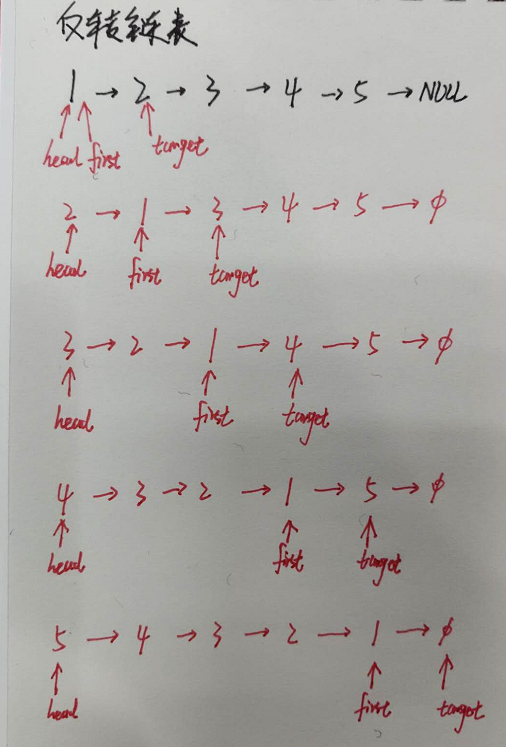 反转链表
1 → 2 → 3 → 4 → 5 → NULL
head first target
2 → 1 → 3 → 4 → 5 → ϕ
head first target
3 → 2 → 1 → 4 → 5 → ϕ
head first target
4 → 3 → 2 → 1 → 5 → ϕ
head first target
5 → 4 → 3 → 2 → 1 → ϕ
head first target